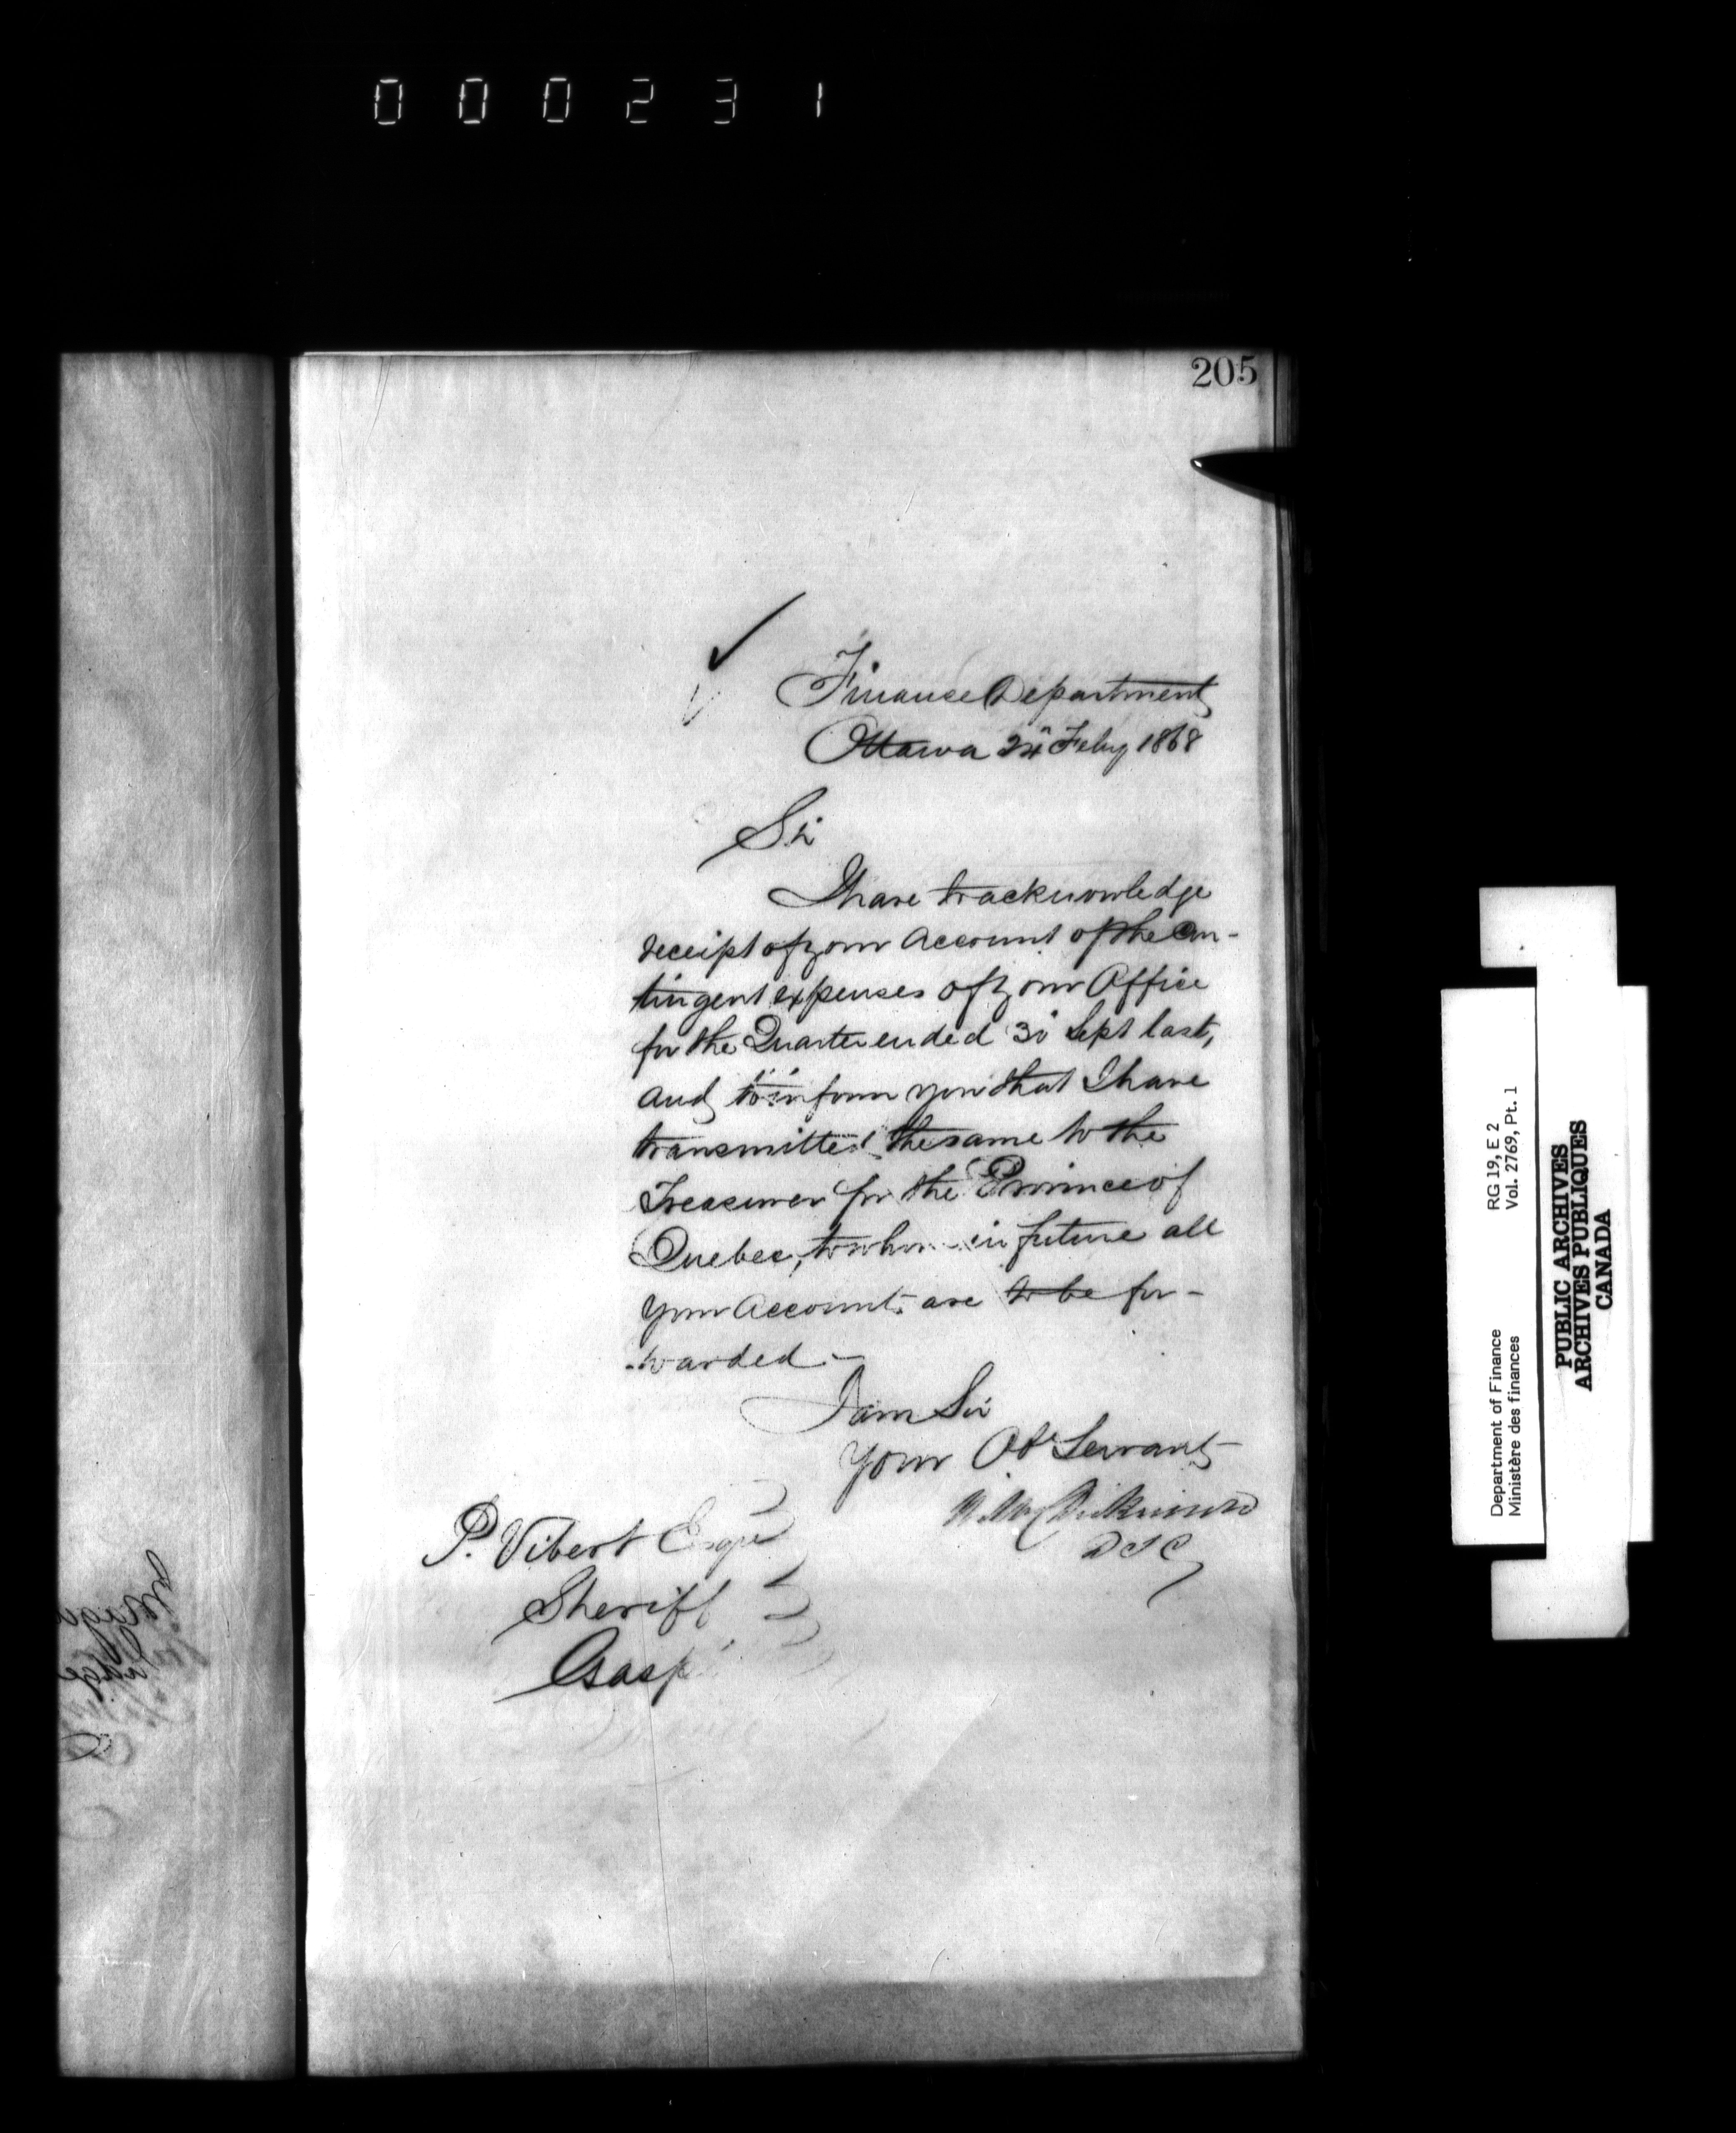 000231
205
Finance Department
Ottawa 24" Feby 1868
Sir
I have to acknowledge
receipt of your Account of the Con-
tingent expenses of your Office
for the Quarter ended 30 Sept last,
and to inform you that I have
transmitted the same to the
Treasurer for the Province of
Quebec, to whom in future all
your Accounts are to be for-
-warded.-
I am Sir
Your Obt Servant
D I G
P. Vibert Esqre
Sheriff
Gaspé
Department of Finance RG 19, E 2
Ministère des finances Vol. 2769, Pt. 1
PUBLIC ARCHIVES
ARCHIVES PUBLIQUES
CANADA